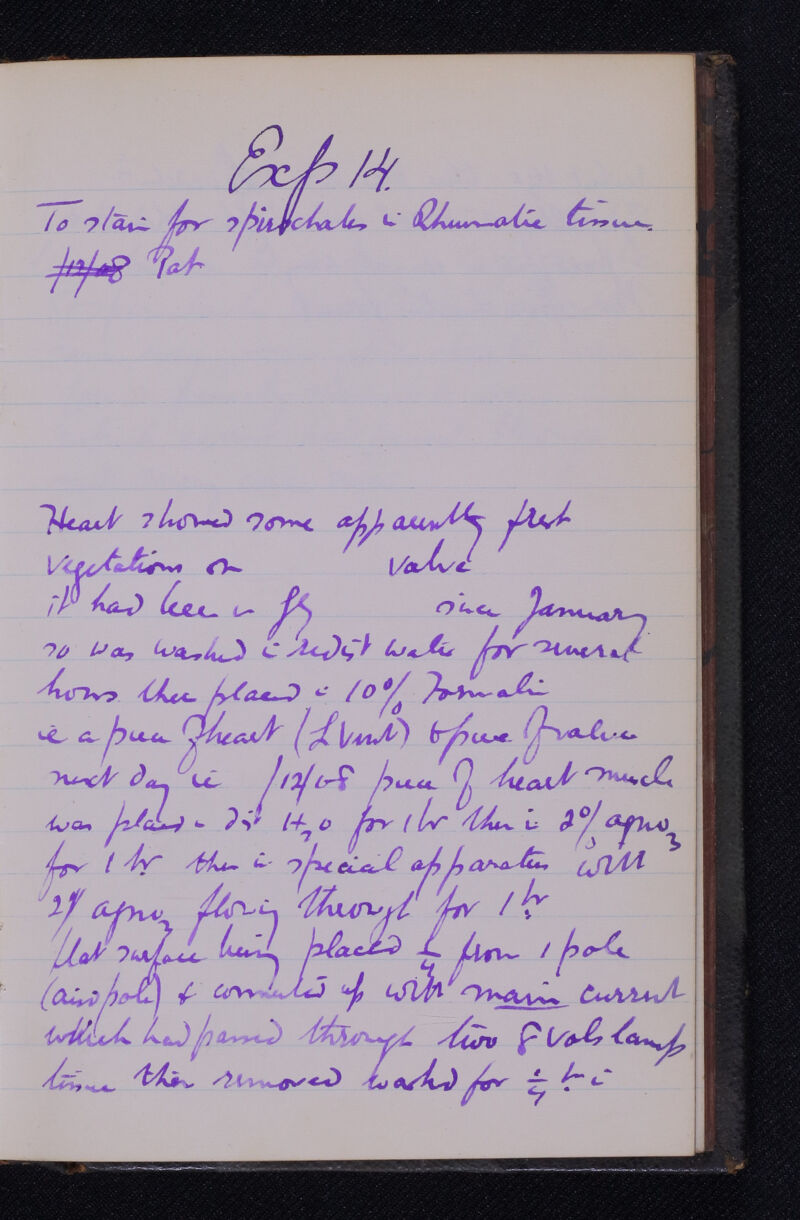 Exp 14.
To stain for spirochates in Rheumatic tissue.
/12/08 Pat
Heart showed some apparently fresh
vegetations on valve
it had been in since January
so was washed in redist water for several
hours then placed in 10% Formalin
ie a piece of heart (L Vent) & piece of valve
next day ie /12/08 piece of heart muscle
was placed in dist H2O for 1 hr then in 2% AgNO3
for 1 hr then in special apparatus with
2% AgNO3 flowing through for 1 hr
flat surface being placed from 1 pole
pole) & connected up with main current
which had passed through two 8 volt lamps
tissue then removed washed for 1/4 hr in